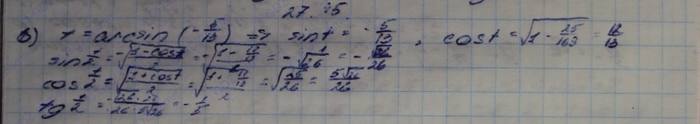 27.15.
б) t = arcsin (-5/13) => sin t = -5/13, cos t = √(1 - 25/169) = 12/13
sin t/2 = -√((1-cos t)/2) = -√((1-12/13)/2) = -√(1/26) = -√26/26
cos t/2 = √((1+cos t)/2) = √((1+12/13)/2) = √(25/26) = 5√26/26
tg t/2 = -√26·26/26·5√26 = -1/5